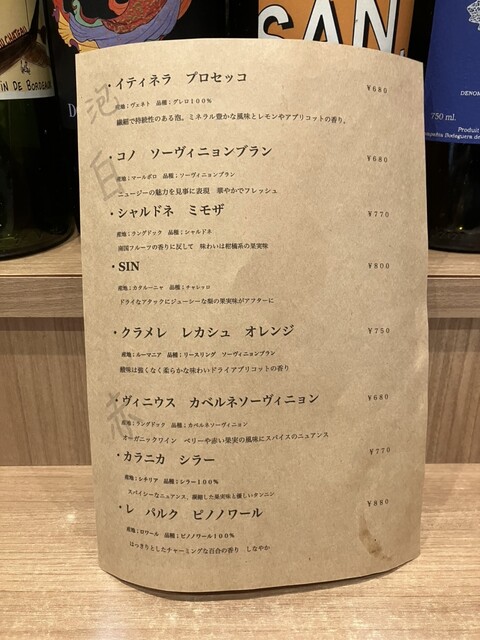 IN DE BORDEAUX
SAN
DENOM
750 ml.
Produit
・イティネラ　プロセッコ
￥680
泡
産地；ヴェネト　品種；グレロ１００％
繊細で持続性のある泡。ミネラル豊かな風味とレモンやアプリコットの香り。
・コノ　ソーヴィニョンブラン
￥680
白
産地；マールボロ　品種；ソーヴィニョンブラン
ニュージーの魅力を見事に表現　華やかでフレッシュ
・シャルドネ　ミモザ
￥770
産地；ラングドック　品種；シャルドネ
南国フルーツの香りに反して　味わいは柑橘系の果実味
・SIN
￥800
産地；カタルーニャ　品種；チャレッロ
ドライなアタックにジューシーな梨の果実味がアフターに
・クラメレ　レカシュ　オレンジ
￥750
産地；ルーマニア　品種；リースリング　ソーヴィニョンブラン
酸味は強くなく柔らかな味わいドライアプリコットの香り
・ヴィニウス　カベルネソーヴィニョン
￥680
赤
産地；ラングドック　品種；カベルネソーヴィニョン
オーガニックワイン　ベリーや赤い果実の風味にスパイスのニュアンス
・カラニカ　シラー
￥770
産地；シチリア　品種；シラー１００％
スパイシーなニュアンス、凝縮した果実味と優しいタンニン
・レ　パルク　ピノノワール
￥880
産地；ロワール　品種；ピノノワール１００％
はっきりとしたチャーミングな百合の香り　しなやか